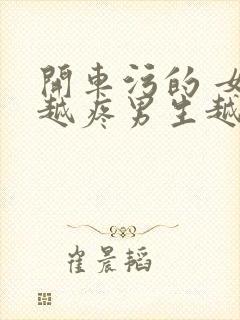 開車污的 女
越疼男生越
崔晨韬